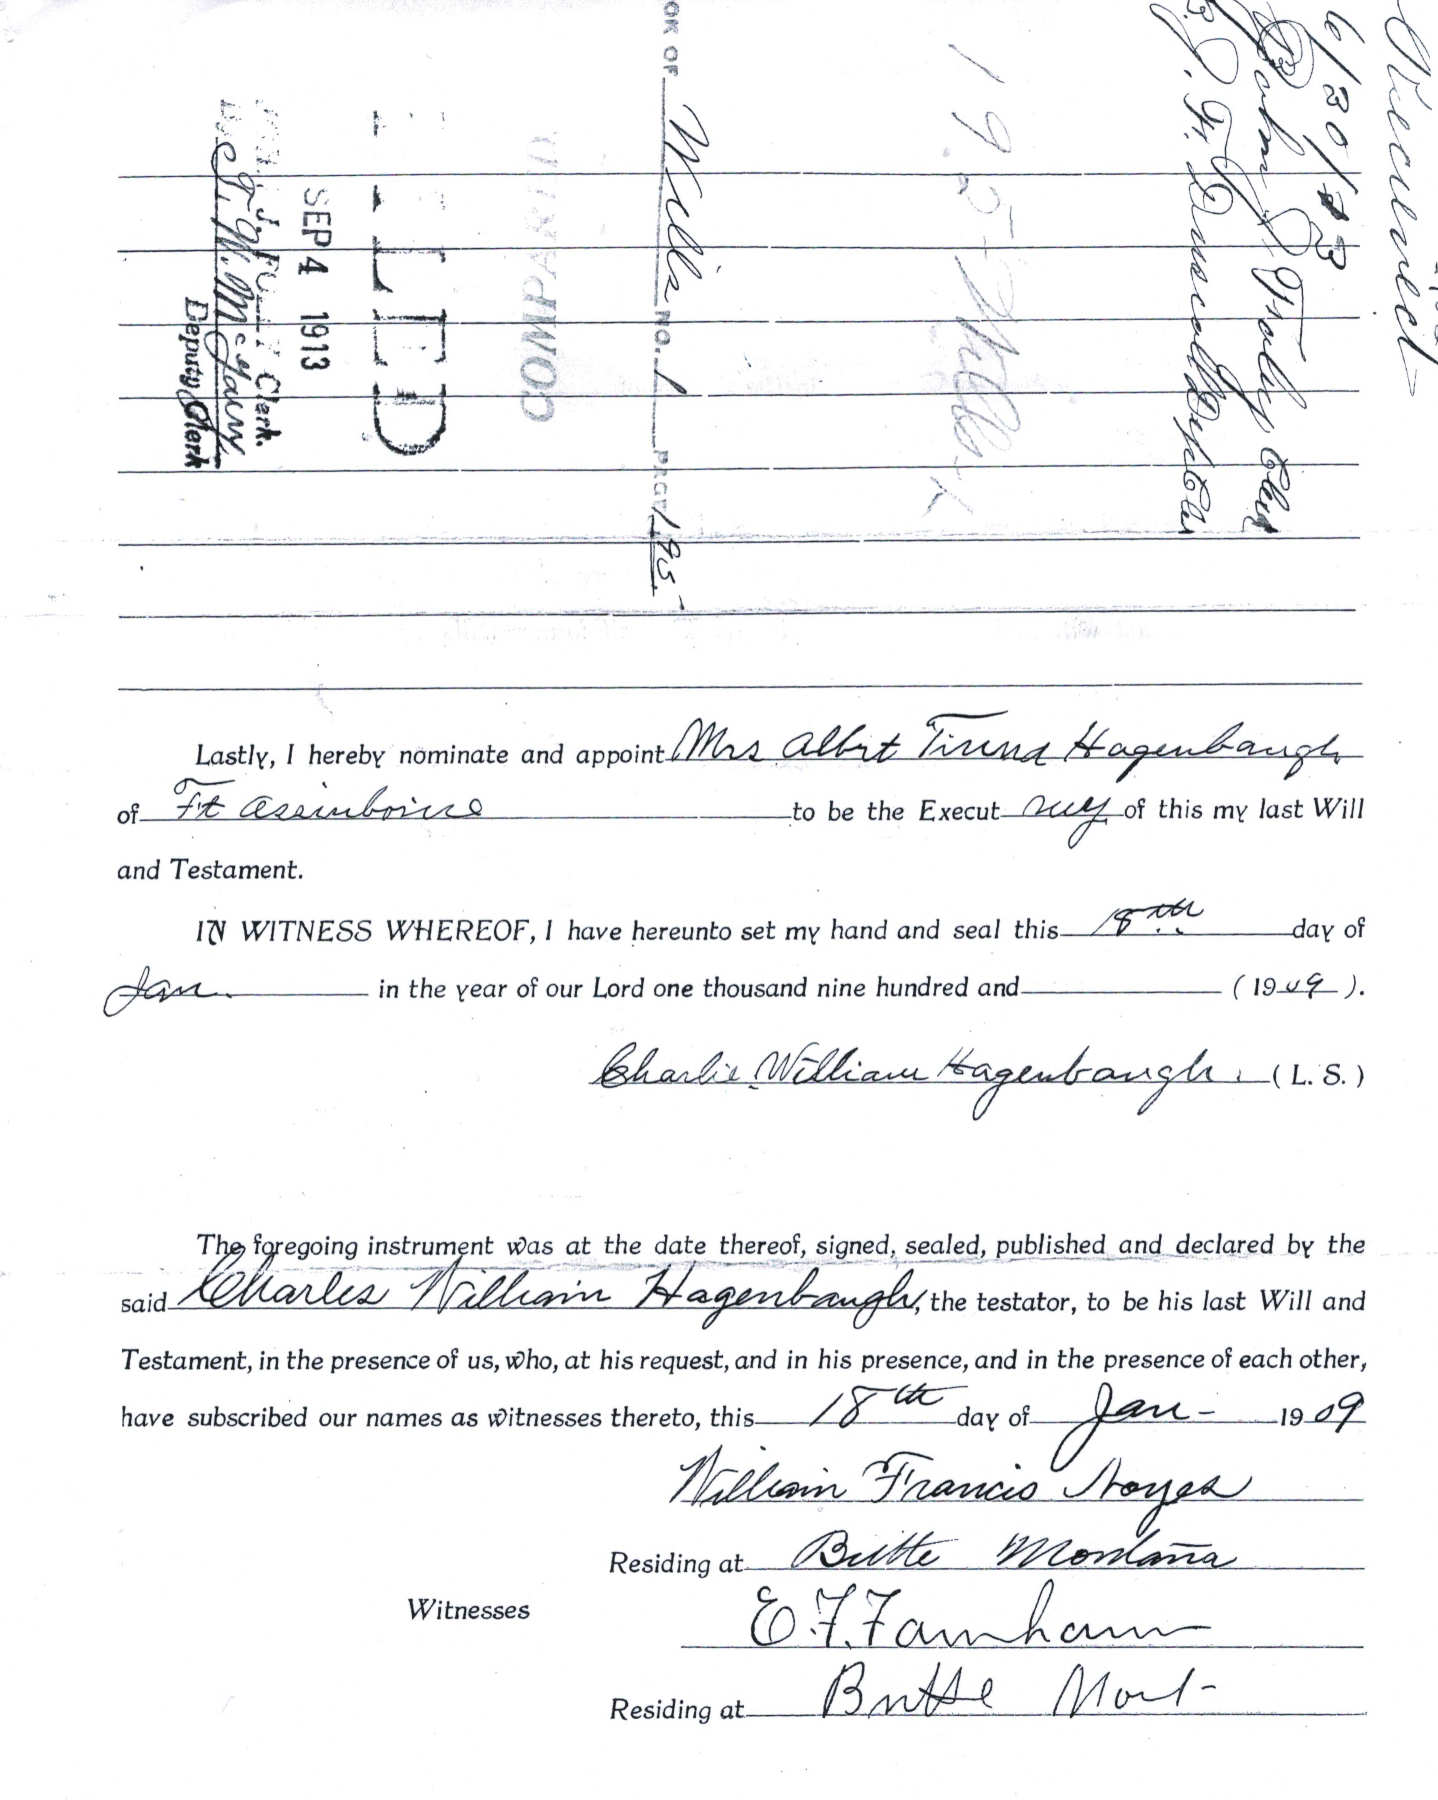 Received
6/30/13
John J Foley Clerk
By J. F. Driscoll Dept Clk
195 - Wills - 1
OK OF Wills NO. 1 PAGE 195
COMPARED
FILED
SEP 4 1913
J. FOLEY Clerk.
Deputy Clerk
Lastly, I hereby nominate and appoint Mrs Albert Hagenbaugh
of Ft Assinboine to be the Execut of this my last Will
and Testament.
IN WITNESS WHEREOF, I have hereunto set my hand and seal this 18th day of
Jan. in the year of our Lord one thousand nine hundred and ( 1909 ).
Charlie William Hagenbaugh. ( L. S. )
The foregoing instrument was at the date thereof, signed, sealed, published and declared by the
said Charles William Hagenbaugh, the testator, to be his last Will and
Testament, in the presence of us, who, at his request, and in his presence, and in the presence of each other,
have subscribed our names as witnesses thereto, this 18th day of Jan - 1909
William Francis Noyes
Residing at Butte Montana
Witnesses
E. F. Farnham
Residing at Butte Mont-